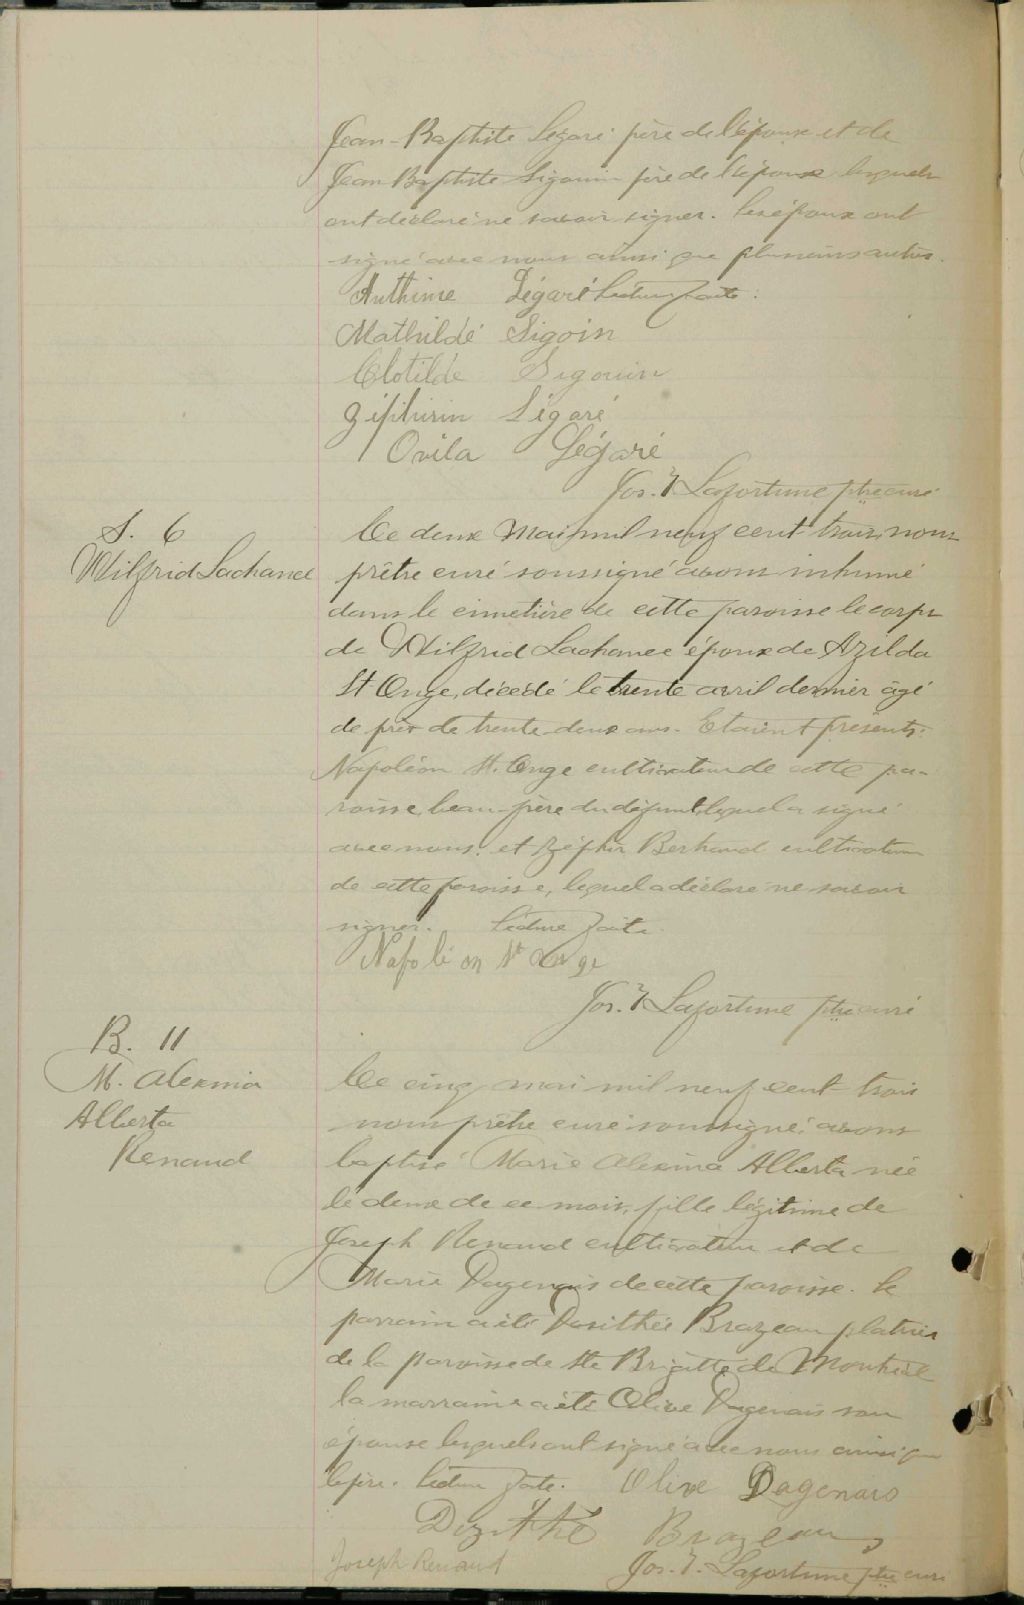 Jean-Baptiste Légaré père de l'époux et de
Jean-Baptiste Sigouin père de l'épouse lesquels
ont déclaré ne savoir signer. Les époux ont
signé avec nous ainsi que plusieurs autres.
Anthime Légaré Lecture faite.
Mathildé Sigoin
Clotilde Sigouin
Zéphirin Légaré
Ovila Légaré
Jos. T Lafortune ptre curé
S. 6
Wilfrid Lachance
Ce deux Mai mil neuf cent trois, nous
prêtre curé soussigné avons inhumé
dans le cimetière de cette paroisse le corps
de Wilfrid Lachance époux de Azilda
St Onge, décédé le trente avril dernier âgé
de près de trente-deux ans. Etaient présents:
Napoléon St. Onge cultivateur de cette pa-
roisse, beau-père du défunt, lequel a signé
avec nous. et Zéphir Bertrand cultivateur
de cette paroisse, lequel a déclaré ne savoir
signer. Lecture faite.
Napoléon St Onge
Jos. T Lafortune ptre curé
B. 11
M. Alexina
Alberta
Renaud
Ce cinq mai mil neuf cent trois
nous prêtre curé soussigné, avons
baptisé Marie Alexina Alberta née
le deux de ce mois, fille légitime de
Joseph Renaud cultivateur et de
Marie Dagenais de cette paroisse. Le
parrain a été Dosithée Brazeau platrier
de la paroisse de Ste Brigitte de Montréal
la marraine a été Olive Dagenais son
épouse lesquels ont signé avec nous ainsi que
le père. Lecture faite. Olive Dagenais
Dozithé Brazeau
Joseph Renaud Jos. T. Lafortune ptre curé